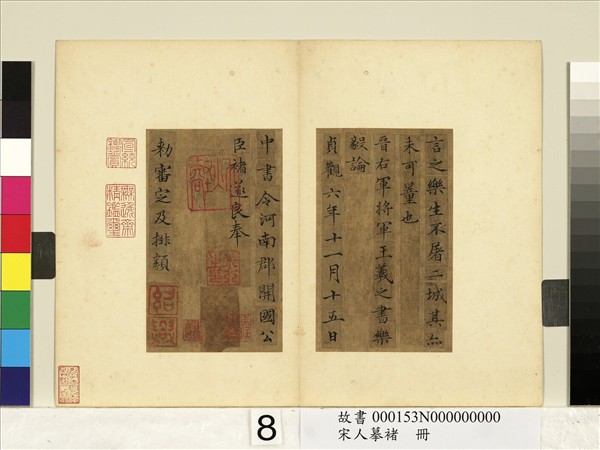 言之樂生不屠二城其亦
未可量也
晉右軍將軍王羲之書樂
毅論
貞觀六年十一月十五日
中書令河南郡開國公
臣褚遂良奉
勅審定及排類
紹興
宣統鑑賞
無逸齋精鑑璽
8
故書 000153N000000000
宋人摹褚 冊